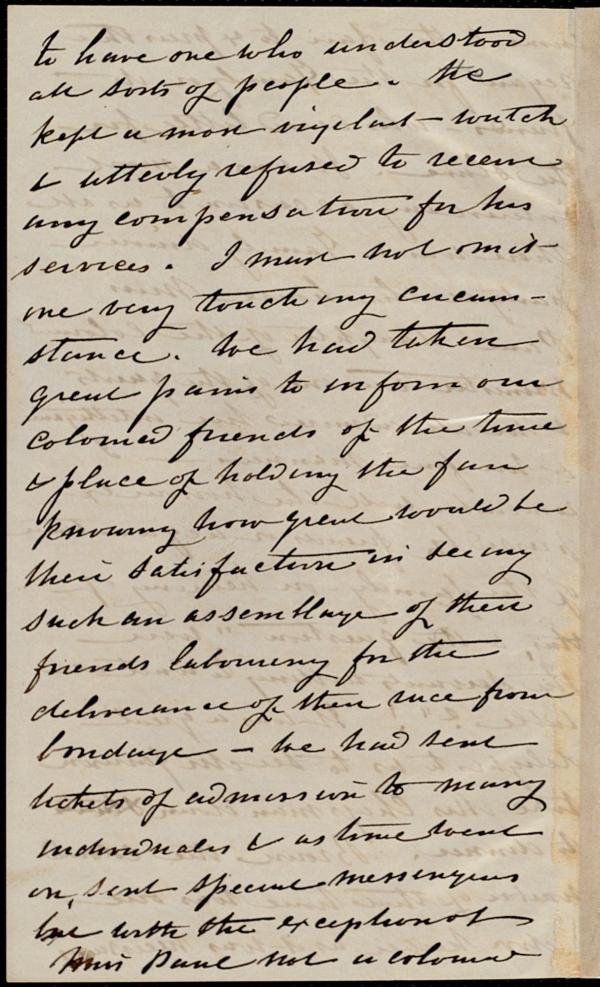 to have one who understood
all sorts of people. He
kept a most vigilant watch
& utterly refused to receive
any compensation for his
services. I must not omit
one very touching circum-
stance. We had taken
great pains to inform our
colored friends of the time
& place of holding the fair
knowing how great would be
their satisfaction in seeing
such an assemblage of their
friends labouring for the
deliverance of their race from
bondage – We had sent
tickets of admission to many
individuals & as time went
on, sent special messengers
but with the exception of
Miss Paul not a colored